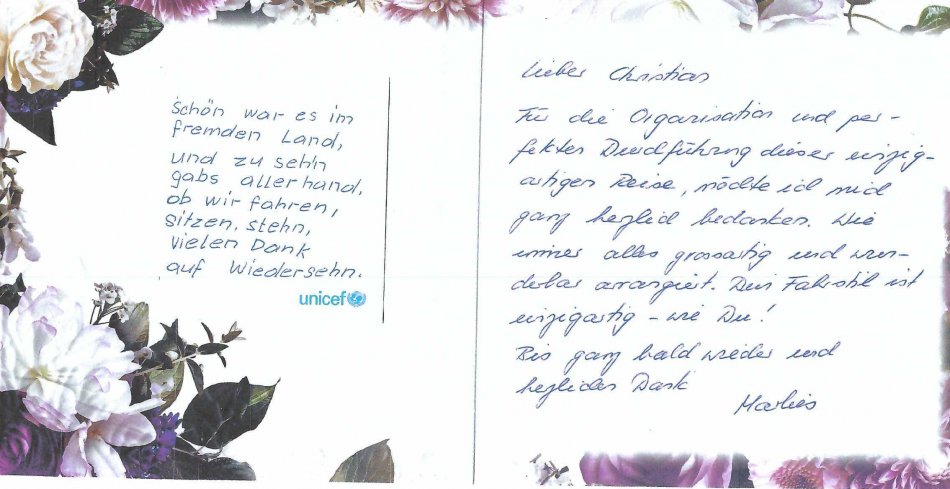 Schön war es im
fremden Land,
und zu seh'n
gabs allerhand,
ob wir fahren,
sitzen, stehn,
vielen Dank
auf Wiedersehn.
unicef
Lieber Christian
Für die Organisation und per-
fekten Durchführung dieser einzig-
artigen Reise, möchte ich mich
ganz herzlich bedanken. Wie
immer alles grossartig und wun-
derbar arrangiert. Dein Fahrstil ist
einzigartig - wie Du!
Bis ganz bald wieder und
herzlichen Dank
Marlies